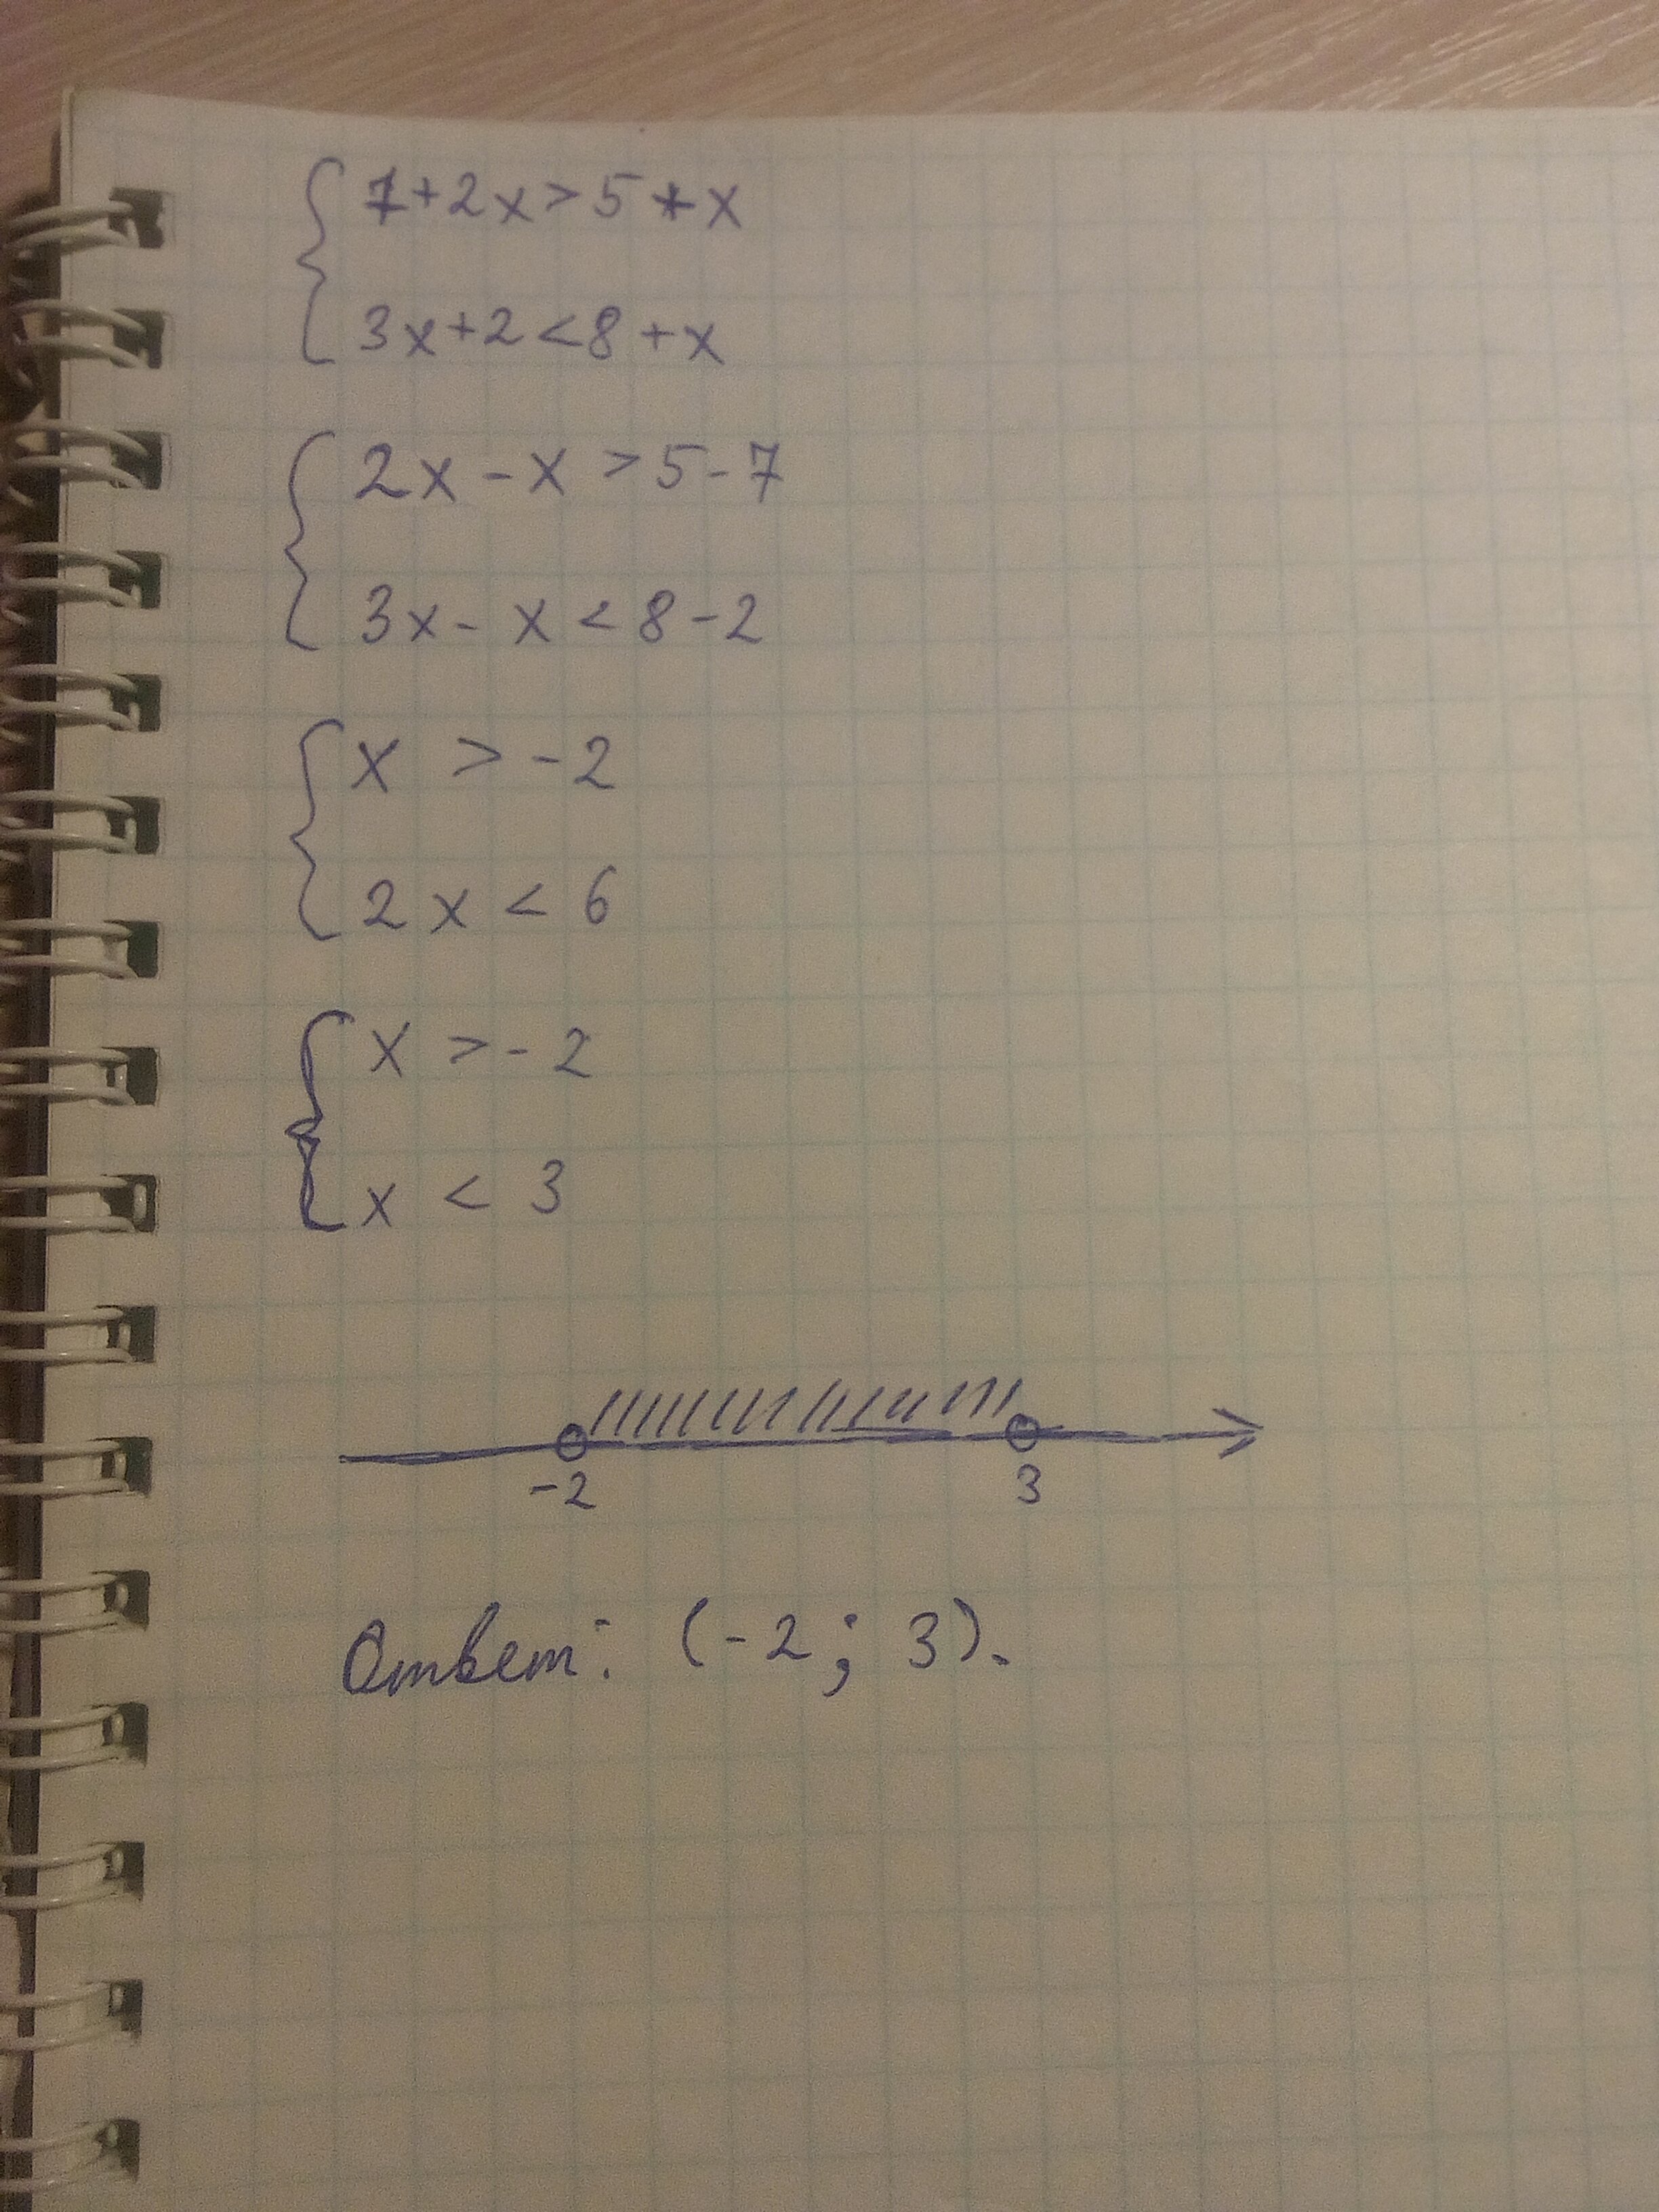 7+2x>5+x
3x+2<8+x
2x-x>5-7
3x-x<8-2
x>-2
2x<6
x>-2
x<3
-2 3
Ответ: (-2; 3).